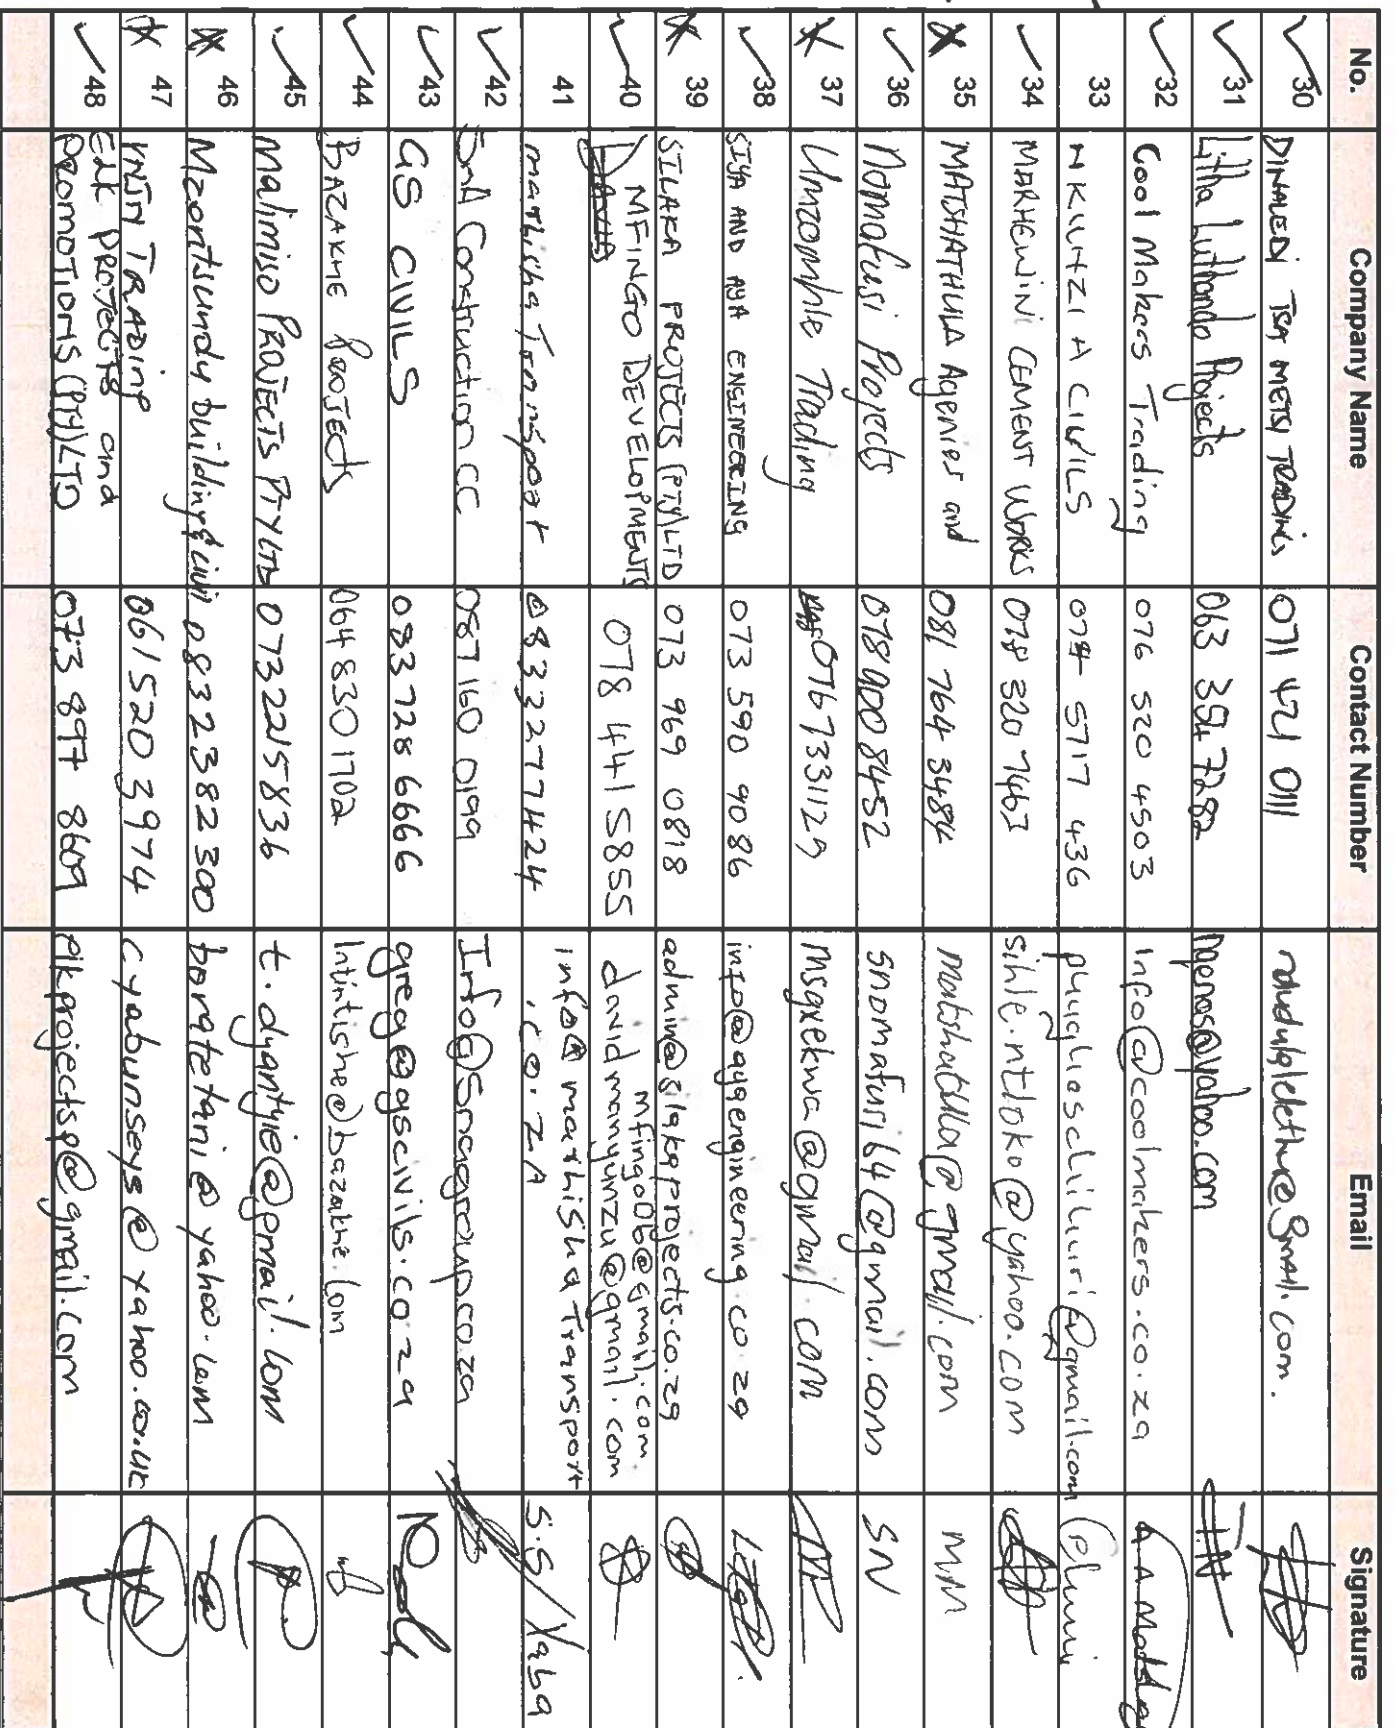 No. Company Name Contact Number Email Signature
✓ 30 DINALEDI TSA METSI TRADING 071 421 0111 ndudulelethu@gmail.com.
✓ 31 Litha Luthando Projects 063 394 7282 @yahoo.com
✓ 32 Cool Makers Trading 076 520 4503 Info@coolmakers.co.za
33 NKUNTZI A CIVILS 5717 436 @gmail.com
✓ 34 MARHEWINI CEMENT WORKS 078 320 7463 sihle.ntloko@yahoo.com
X 35 MATSHATHULA Agenies and 081 764 3484 matshatulla@gmail.com MM
✓ 36 Nomafusi Projects 078 400 8452 snomafusi64@gmail.com SN
X 37 Umzomhle Trading 0767331129 msqxekwa@gmail.com
✓ 38 SIYA AND AYA ENGINEERING 073 590 9086 info@ayaengineering.co.za
X 39 SILAKA PROJECTS (PTY) LTD 073 969 0818 admin@silakaprojects.co.za
✓ 40 MFINGO DEVELOPMENTS 078 441 5855 mfingo06@gmail.com
davidmanyunzu@gmail.com
41 marhisha Transport 0833277424 info@marhishaTransport
.co.ZA
✓ 42 SmA Construction CC 087 160 0199 Info@Smagroup.co.za
✓ 43 GS CIVILS 083 728 6666 greg@gscivils.co.za
✓ 44 BAZAKHE Projects 064 830 1702 Intintishe@bazakhe.com
✓ 45 Malimiso PROJECTS PTY LTD 0732215836 t.dyantyie@gmail.com
X 46 Mzontsundu building & civil 0832382300 boratetani@yahoo.com
X 47 TRADING 061 520 3974 cyabunseys@yahoo.co.uk
✓ 48 ELK PROJECTS and
PROMOTIONS (PTY) LTD 073 897 8609 elkprojectsp@gmail.com